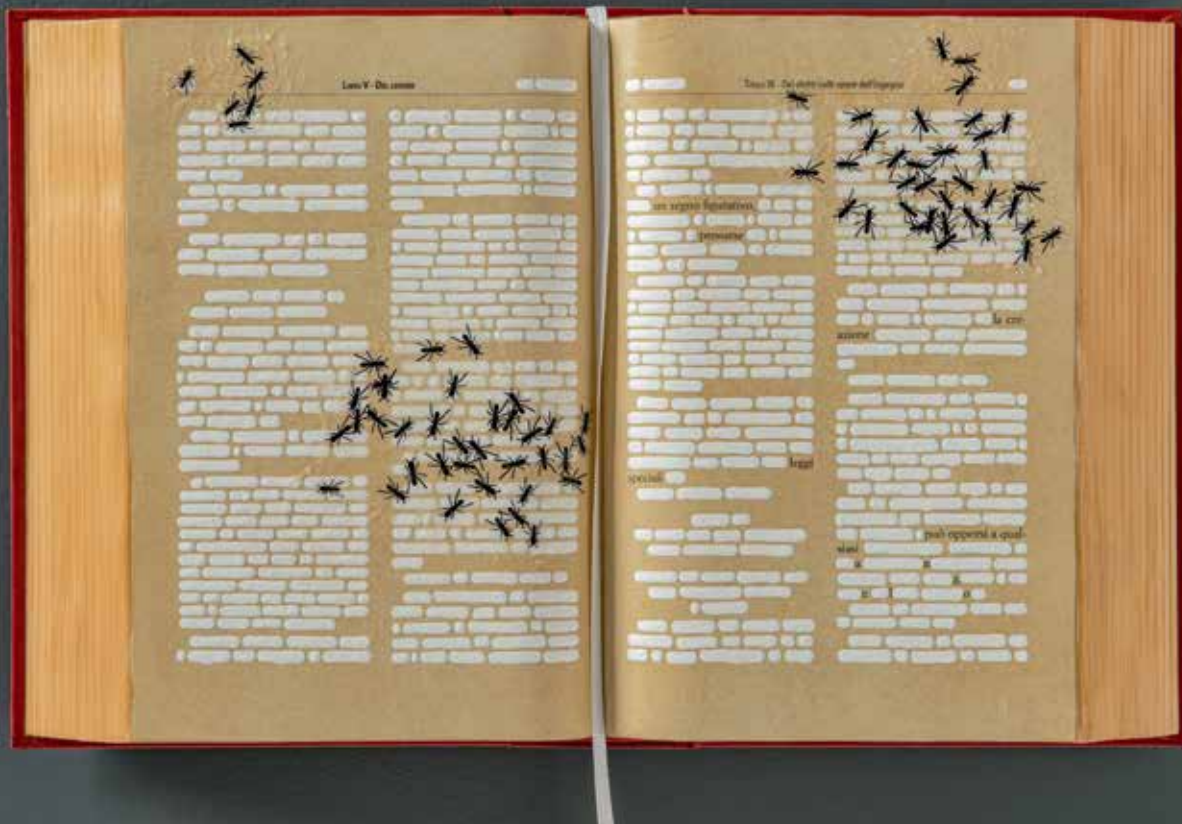 Libro V - Del lavoro
Titolo IX - Dei diritti sulle opere dell'ingegno
un segno figurativo,
persone
leggi
speciali
la cre-
azione
può opporsi a qual-
siasi
a n
a
u l o